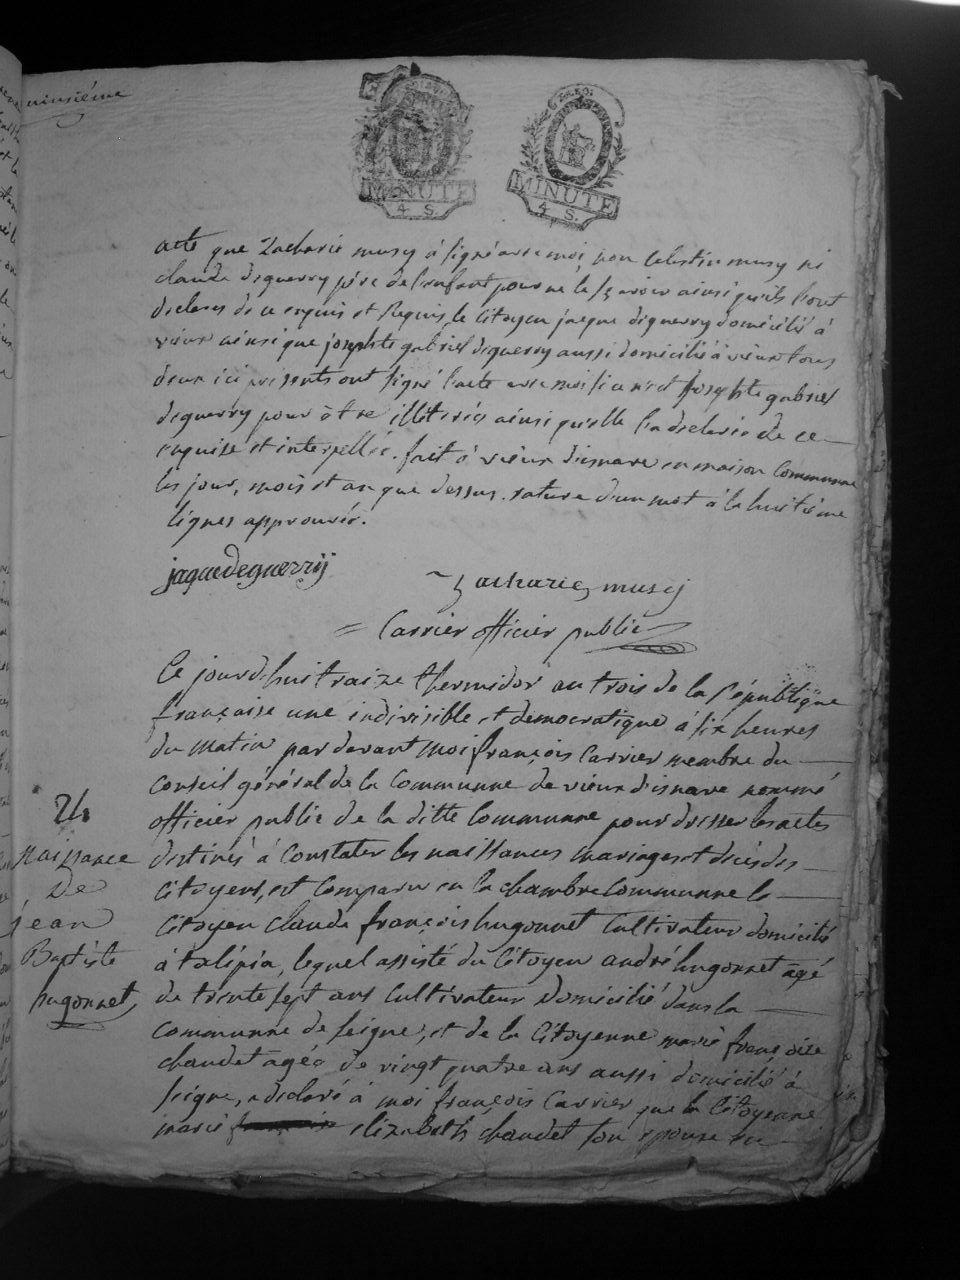 MINUTE
4 S.
MINUTE
4 S.
acte que Zacharie musy à signé avec moi, non Celestin musy ni
claude deguerry père de l'enfant pour ne le sçavoir ainsi qu'ils l'ont
declarés de ce enquis et Requis, le Citoyen jacque deguerry domicilié à
vieux ainsi que josephte gabriel deguerry aussi domicilié à vieux tous
deux ici présents ont signé l'acte avec moi si ce n'est josephte gabriel
deguerry pour être illiterée ainsi qu'elle l'a declarée de ce
enquise et interpellée. fait à vieux disnave en maison Communne
les jour, mois et an que dessus. rature d'un mot à la huitième
lignes approuvée.
jaquedeguerrÿ
zacharie musy
Carrier officier public
Ce jourd'hui traize thermidor an trois de la République
française une indivisible et democratique à six heures
du matin par devant moi françois Carrier membre du
Conseil général de la Communne de vieux disnave nommé
officier public de la ditte Communne pour dresser les actes
destinés à Constater les naissances mariages et décés des
Citoyens, est Comparu en la chambre Communne le
Citoyen claude françois hugonnet Cultivateur domicilié
à talipia, lequel assisté du Citoyen andré hugonnet agé
de trente sept ans Cultivateur Domicilié dans la
Communne de seigne, et de la Citoyenne marie françoise
chaudet agée de vingt quatre ans aussi domicilié à
seigne, a declaré à moi françois Carrier que la Citoyenne
marie elizabeth chaudet son epouse en
24
Naissance
De
jean
Baptiste
hugonnet